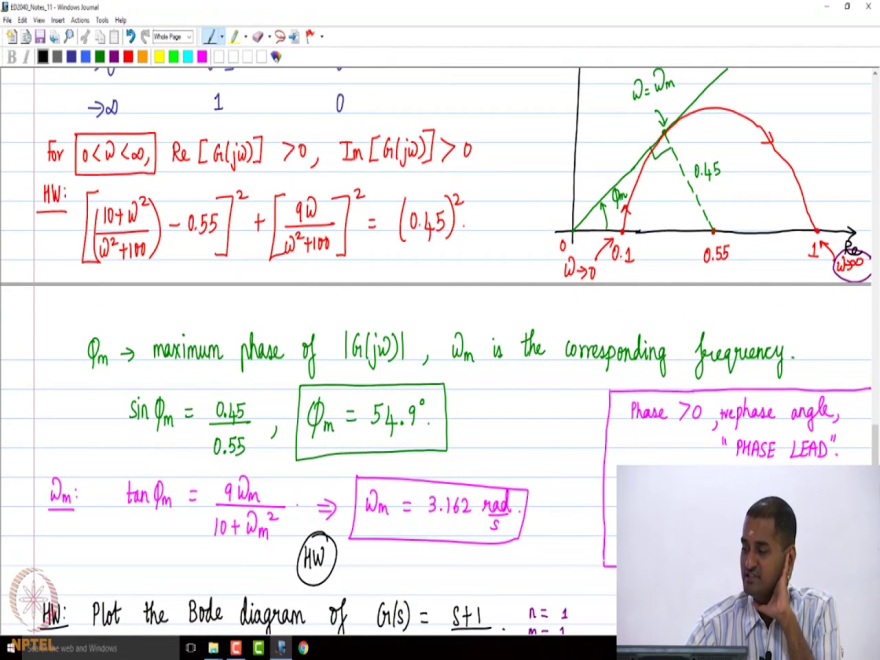 ED2040_Notes_11 - Windows Journal
File Edit View Insert Actions Tools Help
Whole Page
B I
→∞ 1 0
For 0 < ω < ∞, Re [G(jω)] > 0, Im [G(jω)] > 0
HW: [(10+ω²/ω²+100) - 0.55]² + [9ω/ω²+100]² = (0.45)².
ω = ωm
0.45
φm
0 0.1 0.55 1 Re
ω→0 ω→∞
φm → maximum phase of |G(jω)|, ωm is the corresponding frequency.
sin φm = 0.45/0.55, φm = 54.9°.
Phase > 0, +ve phase angle,
"PHASE LEAD".
ωm: tan φm = 9ωm/10+ωm² ⇒ ωm = 3.162 rad/s.
HW
HW: Plot the Bode diagram of G(s) = s+1
n = 1
m = 1
NPTEL
the web and Windows